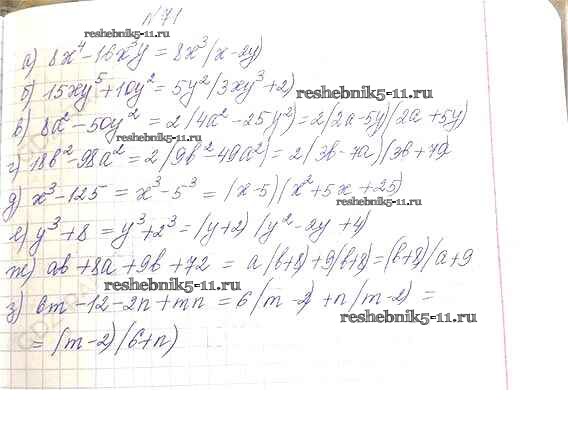 №71
а) 8x⁴ - 16x³y = 8x³(x-2y)
reshebnik5-11.ru
б) 15xy⁵ + 10y² = 5y²(3xy³+2)
reshebnik5-11.ru
в) 8a² - 50y² = 2(4a² - 25y²) = 2(2a-5y)(2a+5y)
reshebnik5-11.ru
г) 18b² - 98a² = 2(9b² - 49a²) = 2(3b-7a)(3b+7a
д) x³ - 125 = x³ - 5³ = (x-5)(x²+5x+25)
reshebnik5-11.ru
е) y³ + 8 = y³ + 2³ = (y+2)(y² - 2y + 4)
ж) ab + 8a + 9b + 72 = a(b+8) + 9(b+8) = (b+8)(a+9
reshebnik5-11.ru
з) 6m - 12 - 2n + mn = 6(m-2) + n(m-2) =
reshebnik5-11.ru
= (m-2)(6+n)